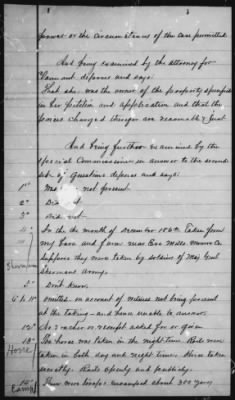 power or the circumstances of the case permitted
And being examined by the attorney for
Claimant deposes and says:
That she was the owner of the property specified
in her petition and application and that the
prices charged therefor are reasonable & just
And being further examined by the
special Commissioner in answer to the second
set of questions deposes and says:
1st Was not present
2d Did not
3d Did not
4" In the month of December 1864 Taken from
my barn and farm near Eve Mills Monroe Co
Suppose they were taken by soldiers of Maj Genl
Shermans Army.
5 Don't know.
6 to 11" omitted on account of witness not being present
at the taking - and hence unable to answer.
12" No voucher or receipt asked for or given
13" The horse was taken in the night time Rails were
taken in both day and night time. Horse taken
secretly. Rails openly and publicly.
14" There were troops encamped about 300 yards
Horse
Camp